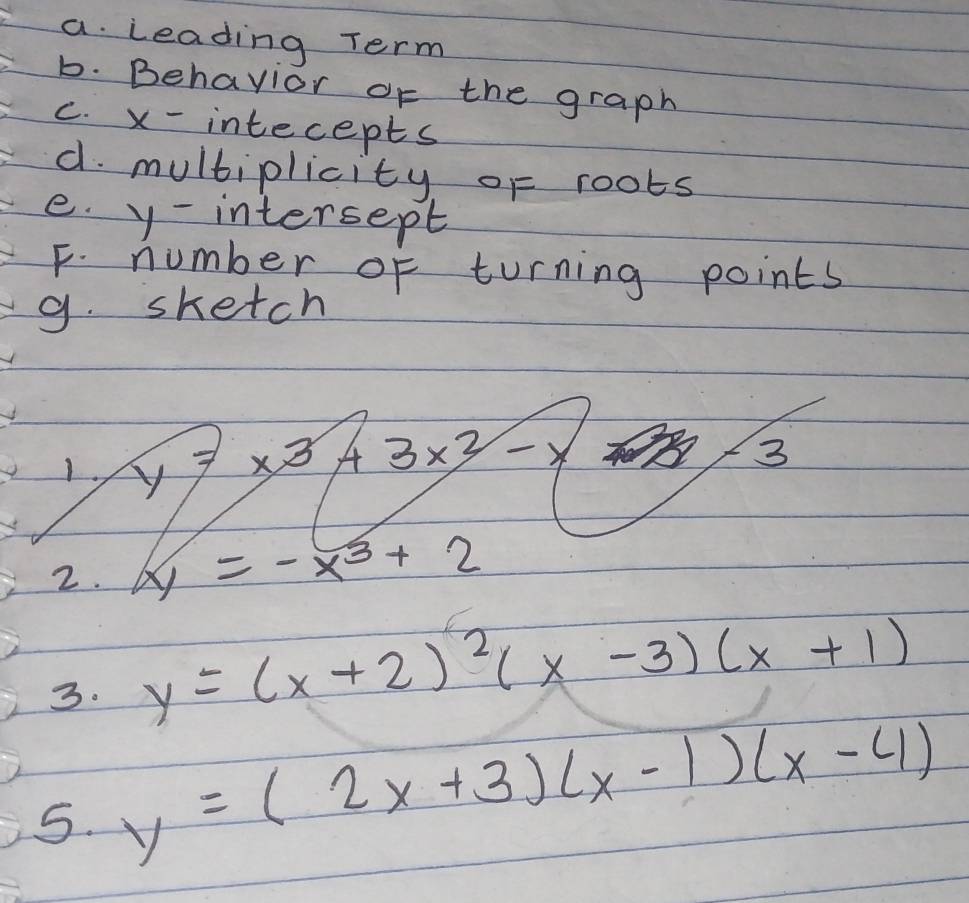 a. Leading Term
b. Behavior of the graph
c. x - intecepts
d. multiplicity of roots
e. y - intersept
F. number of turning points
g. sketch
1. y = x³ + 3x² - x - 3
2. y = -x³ + 2
3. y = (x + 2)² (x - 3) (x + 1)
5. y = (2x + 3) (x - 1) (x - 4)